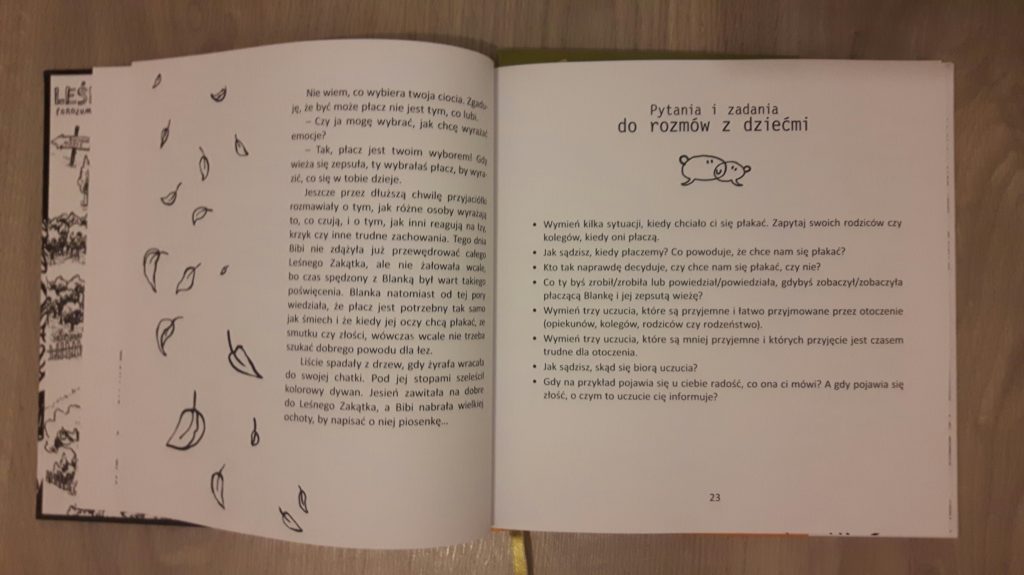 LEŚ
Nie wiem, co wybiera twoja ciocia. Zgadu-
ję, że być może płacz nie jest tym, co lubi.
– Czy ja mogę wybrać, jak chcę wyrażać
emocje?
– Tak, płacz jest twoim wyborem! Gdy
wieża się zepsuła, ty wybrałaś płacz, by wyra-
zić, co się w tobie dzieje.
Jeszcze przez dłuższą chwilę przyjaciółki
rozmawiały o tym, jak różne osoby wyrażają
to, co czują, i o tym, jak inni reagują na łzy,
krzyk czy inne trudne zachowania. Tego dnia
Bibi nie zdążyła już przewędrować całego
Leśnego Zakątka, ale nie żałowała wcale,
bo czas spędzony z Blanką był wart takiego
poświęcenia. Blanka natomiast od tej pory
wiedziała, że płacz jest potrzebny tak samo
jak śmiech i że kiedy jej oczy chcą płakać, ze
smutku czy złości, wówczas wcale nie trzeba
szukać dobrego powodu dla łez.
Liście spadały z drzew, gdy żyrafa wracała
do swojej chatki. Pod jej stopami szeleścił
kolorowy dywan. Jesień zawitała na dobre
do Leśnego Zakątka, a Bibi nabrała wielkiej
ochoty, by napisać o niej piosenkę...
Pytania i zadania
do rozmów z dziećmi
• Wymień kilka sytuacji, kiedy chciało ci się płakać. Zapytaj swoich rodziców czy
kolegów, kiedy oni płaczą.
• Jak sądzisz, kiedy płaczemy? Co powoduje, że chce nam się płakać?
• Kto tak naprawdę decyduje, czy chce nam się płakać, czy nie?
• Co ty byś zrobił/zrobiła lub powiedział/powiedziała, gdybyś zobaczył/zobaczyła
płaczącą Blankę i jej zepsutą wieżę?
• Wymień trzy uczucia, które są przyjemne i łatwo przyjmowane przez otoczenie
(opiekunów, kolegów, rodziców czy rodzeństwo).
• Wymień trzy uczucia, które są mniej przyjemne i których przyjęcie jest czasem
trudne dla otoczenia.
• Jak sądzisz, skąd się biorą uczucia?
• Gdy na przykład pojawia się u ciebie radość, co ona ci mówi? A gdy pojawia się
złość, o czym to uczucie cię informuje?
23